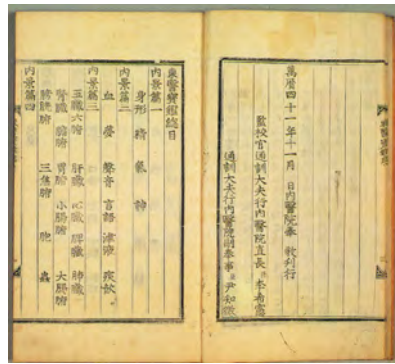 萬曆四十一年十一月 日內醫院奉 敎刊行
監校官通訓大夫行內醫院直長 臣 李希憲
通訓大夫行內醫院副奉事 臣 尹知微
東醫寶鑑總目
內景篇一
身形 精 氣 神
內景篇二
血 夢 聲音 言語 津液 痰飮
內景篇三
五臟六腑 肝臟 心臟 脾臟 肺臟
腎臟 膽腑 胃腑 小腸腑 大腸腑
膀胱腑 三焦腑 胞 蟲
內景篇四